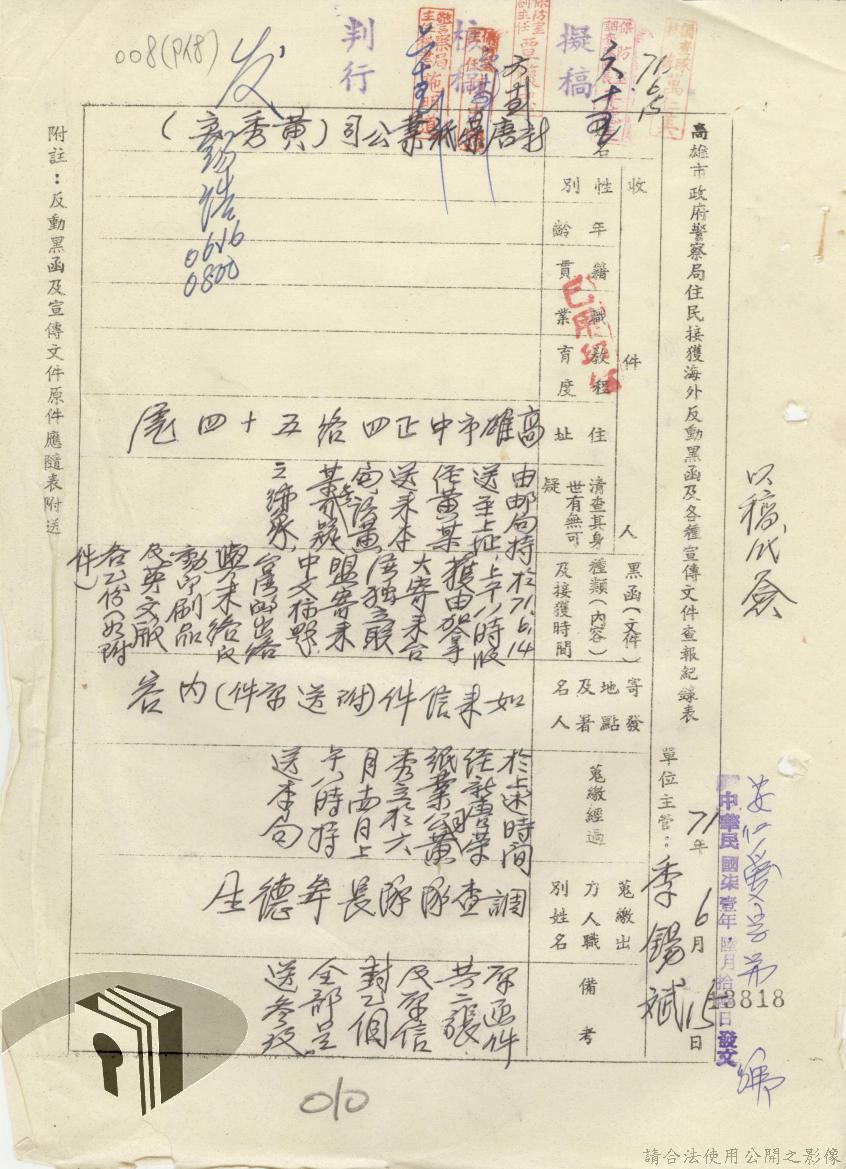 008(P18)
判行
核稿
擬稿
发
以稿代簽
高雄市政府警察局住民接獲海外反動黑函及各種宣傳文件查報紀錄表
單位主管：季錫斌
71年6月15日
中華民國柒壹年陸月拾
日發文
13818
號
收件人
姓名
新唐榮紙業公司（黃秀
性別
年齡
籍貫
職業
教育程度
已用紙
0616
0800
住址
高雄市中正四路五十四
清查其身世有無可疑
由郵局持送至上址
任黃某送來本局該黃某無疑
黑函（文件）種類（內容）及接獲時間
於71.6.14上午八時收獲由加拿大寄來台灣獨立聯盟寄來中文標題
動印刷品及英文版各乙份（如附件）
寄發地點及署名人
如來信件（附送原件）內容
蒐繳經過
於上述時間經新唐榮紙業公司黃秀
於六月十四日上午八時持送本局
蒐繳出方人職別姓名
調查隊隊長牟德生
備考
原函件共二張及原信封乙個全部呈送參攷
附註：反動黑函及宣傳文件原件應隨表附送
010
請合法使用公開之影像